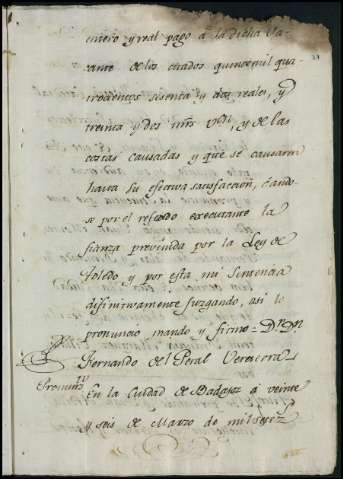 entero y real pago á la dicha va-
cante de los citados quince mil qua-
trocientos sesenta y dos reales, y
treinta y dos mrs vn, y de las
costas causadas y que se causaren
hasta su efectiva satisfaccion, dando-
se por el referido executante la
fianza prevenida por la Ley de
Toledo y por esta mi Sentencia
difinitivamente juzgando, asi lo
pronuncio mando y firmo = Dr. Dn
Fernando del Peral
Pronunto
En la Ciudad de Badajoz á veinte
y seis de Marzo de mil